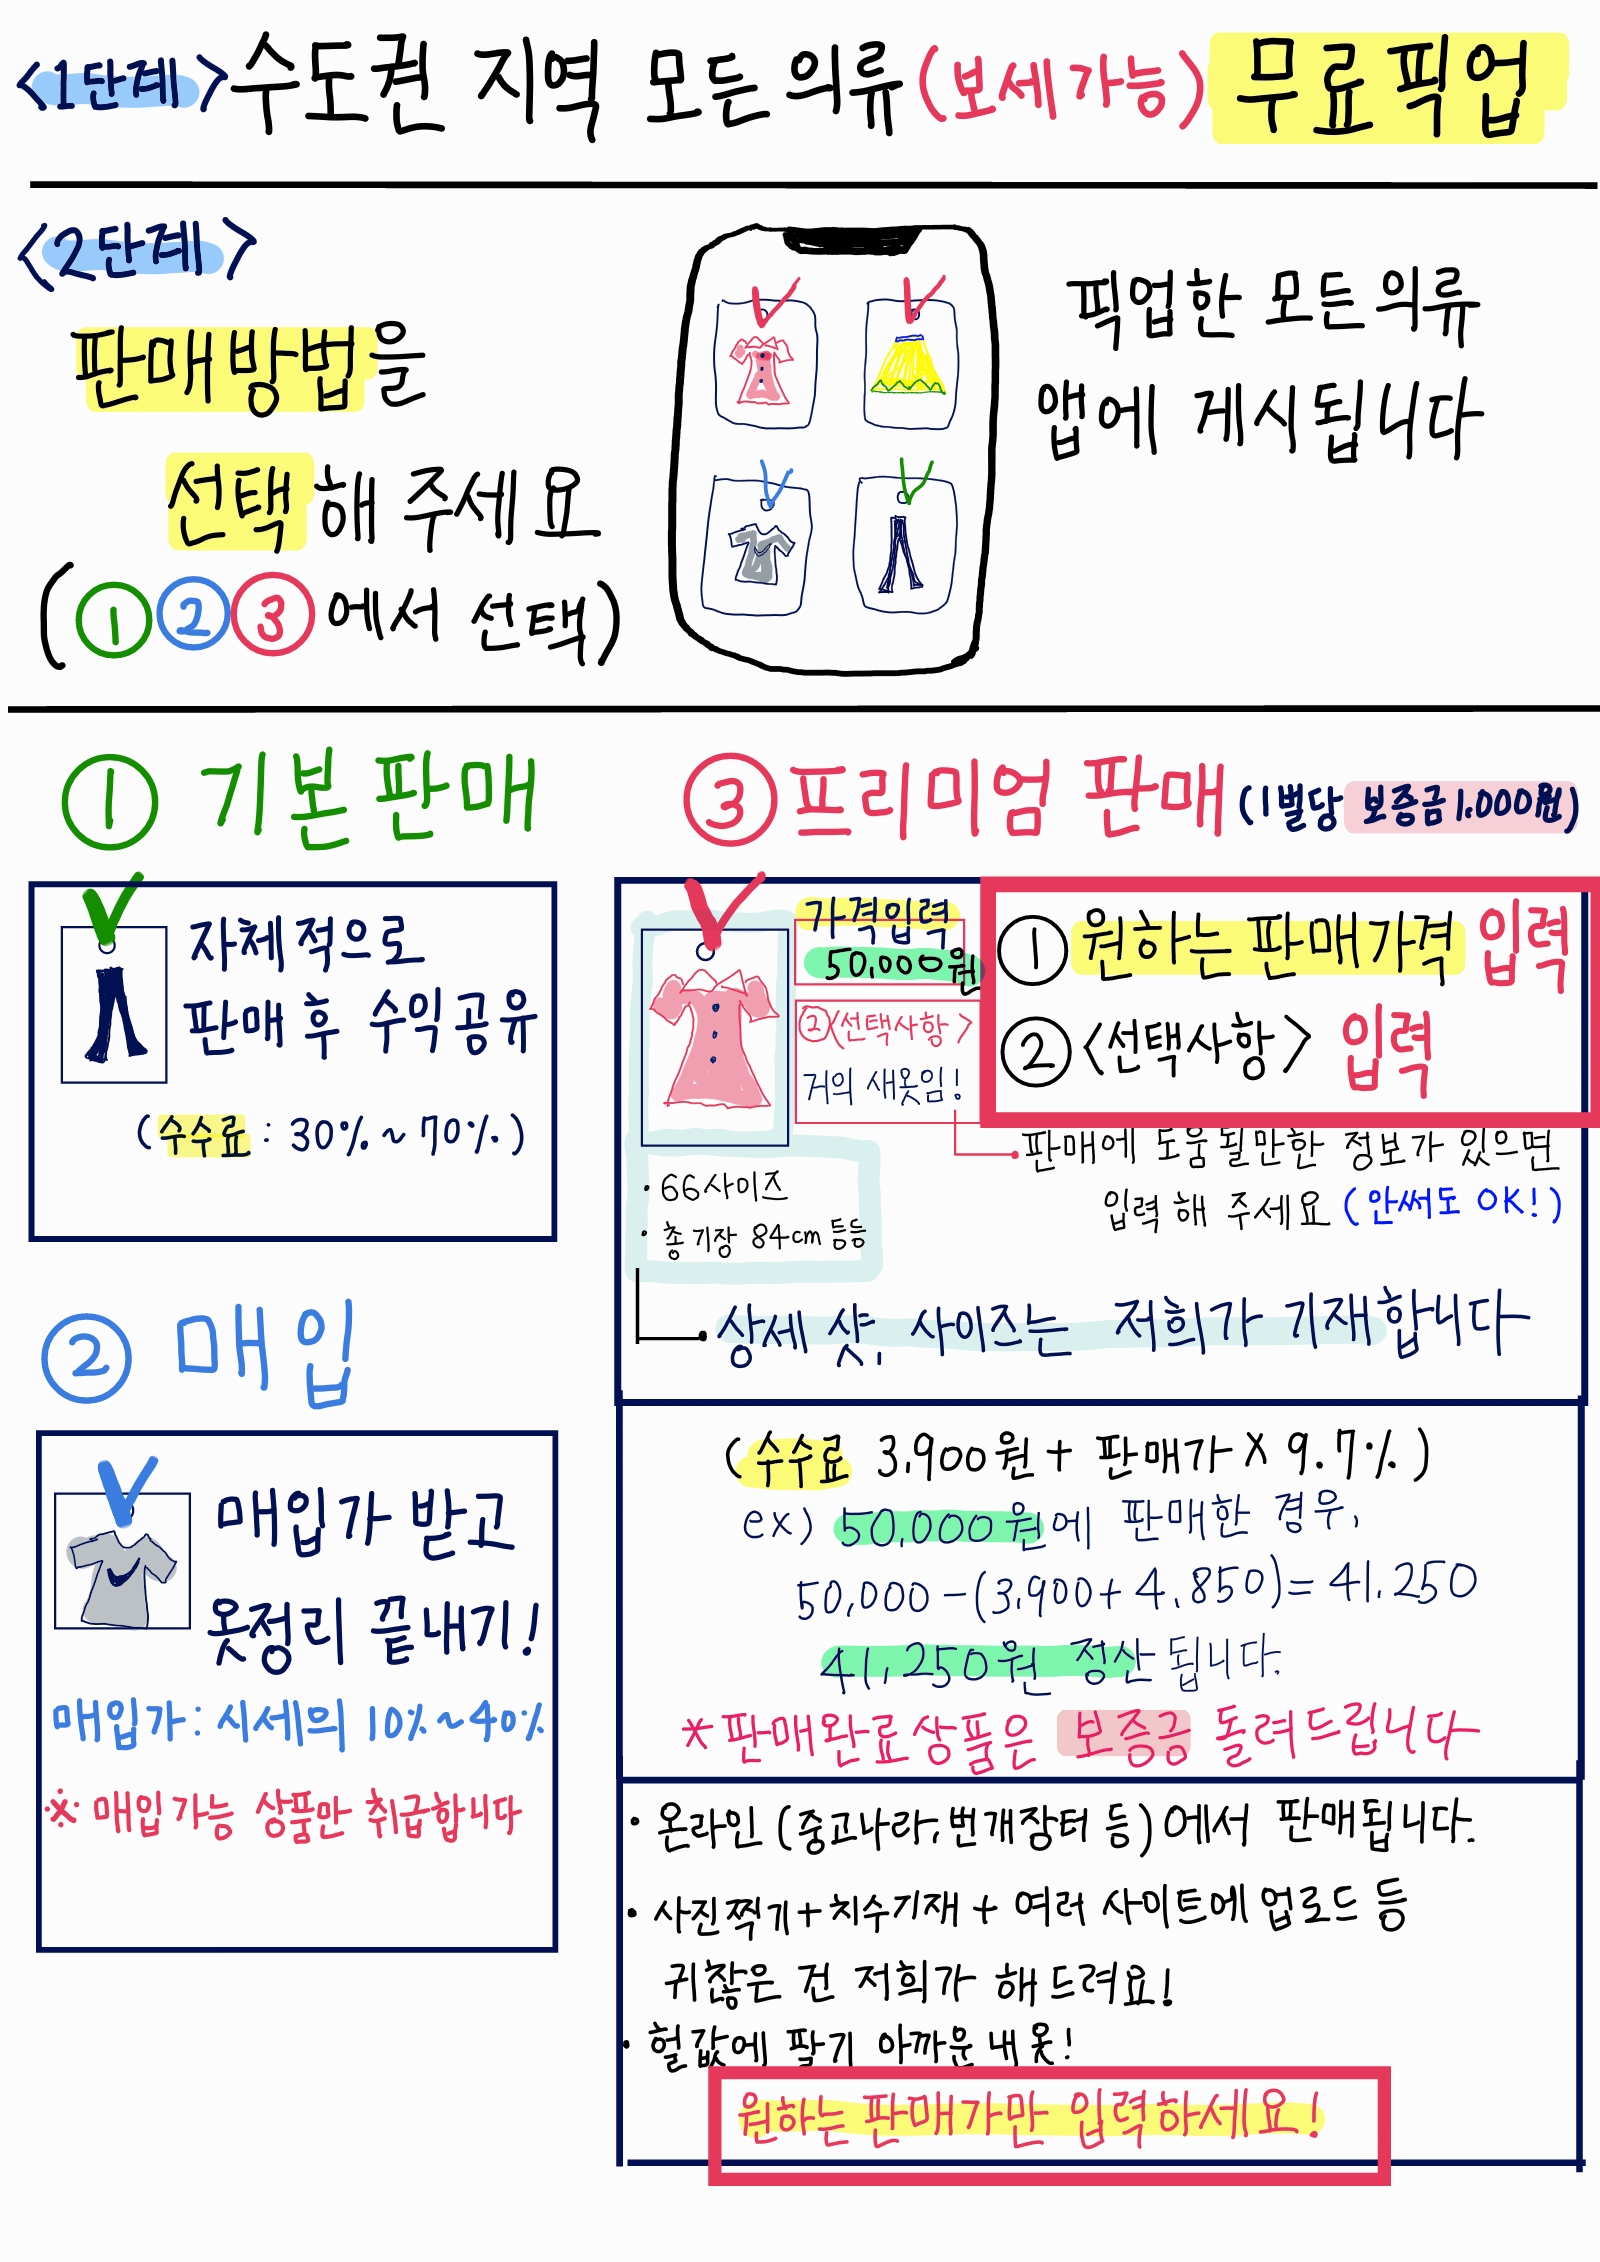 <1단계> 수도권 지역 모든 의류 (보세가능) 무료픽업
<2단계>
판매방법을
선택해 주세요
(① ② ③ 에서 선택)
픽업한 모든 의류
앱에 게시됩니다
① 기본판매
자체적으로
판매 후 수익공유
(수수료 : 30% ~ 70%)
② 매입
매입가 받고
옷정리 끝내기!
매입가: 시세의 10% ~ 40%
※ 매입가능 상품만 취급합니다
③ 프리미엄 판매 (1벌당 보증금 1.000원)
가격입력
50,000원
②<선택사항>
거의 새옷임!
① 원하는 판매가격 입력
② <선택사항> 입력
판매에 도움 될만한 정보가 있으면
입력 해 주세요 (안써도 OK!)
· 66사이즈
· 총기장 84cm 등등
상세 샷, 사이즈는 저희가 기재합니다
(수수료 3,900원 + 판매가 X 9.7%)
ex) 50,000원에 판매한 경우,
50,000 - (3,900 + 4,850) = 41,250
41,250원 정산 됩니다.
* 판매완료상품은 보증금 돌려드립니다
· 온라인 (중고나라, 번개장터 등)에서 판매됩니다.
· 사진찍기 + 치수기재 + 여러 사이트에 업로드 등
귀찮은 건 저희가 해드려요!
· 헐값에 팔기 아까운 내 옷!
원하는 판매가만 입력하세요!